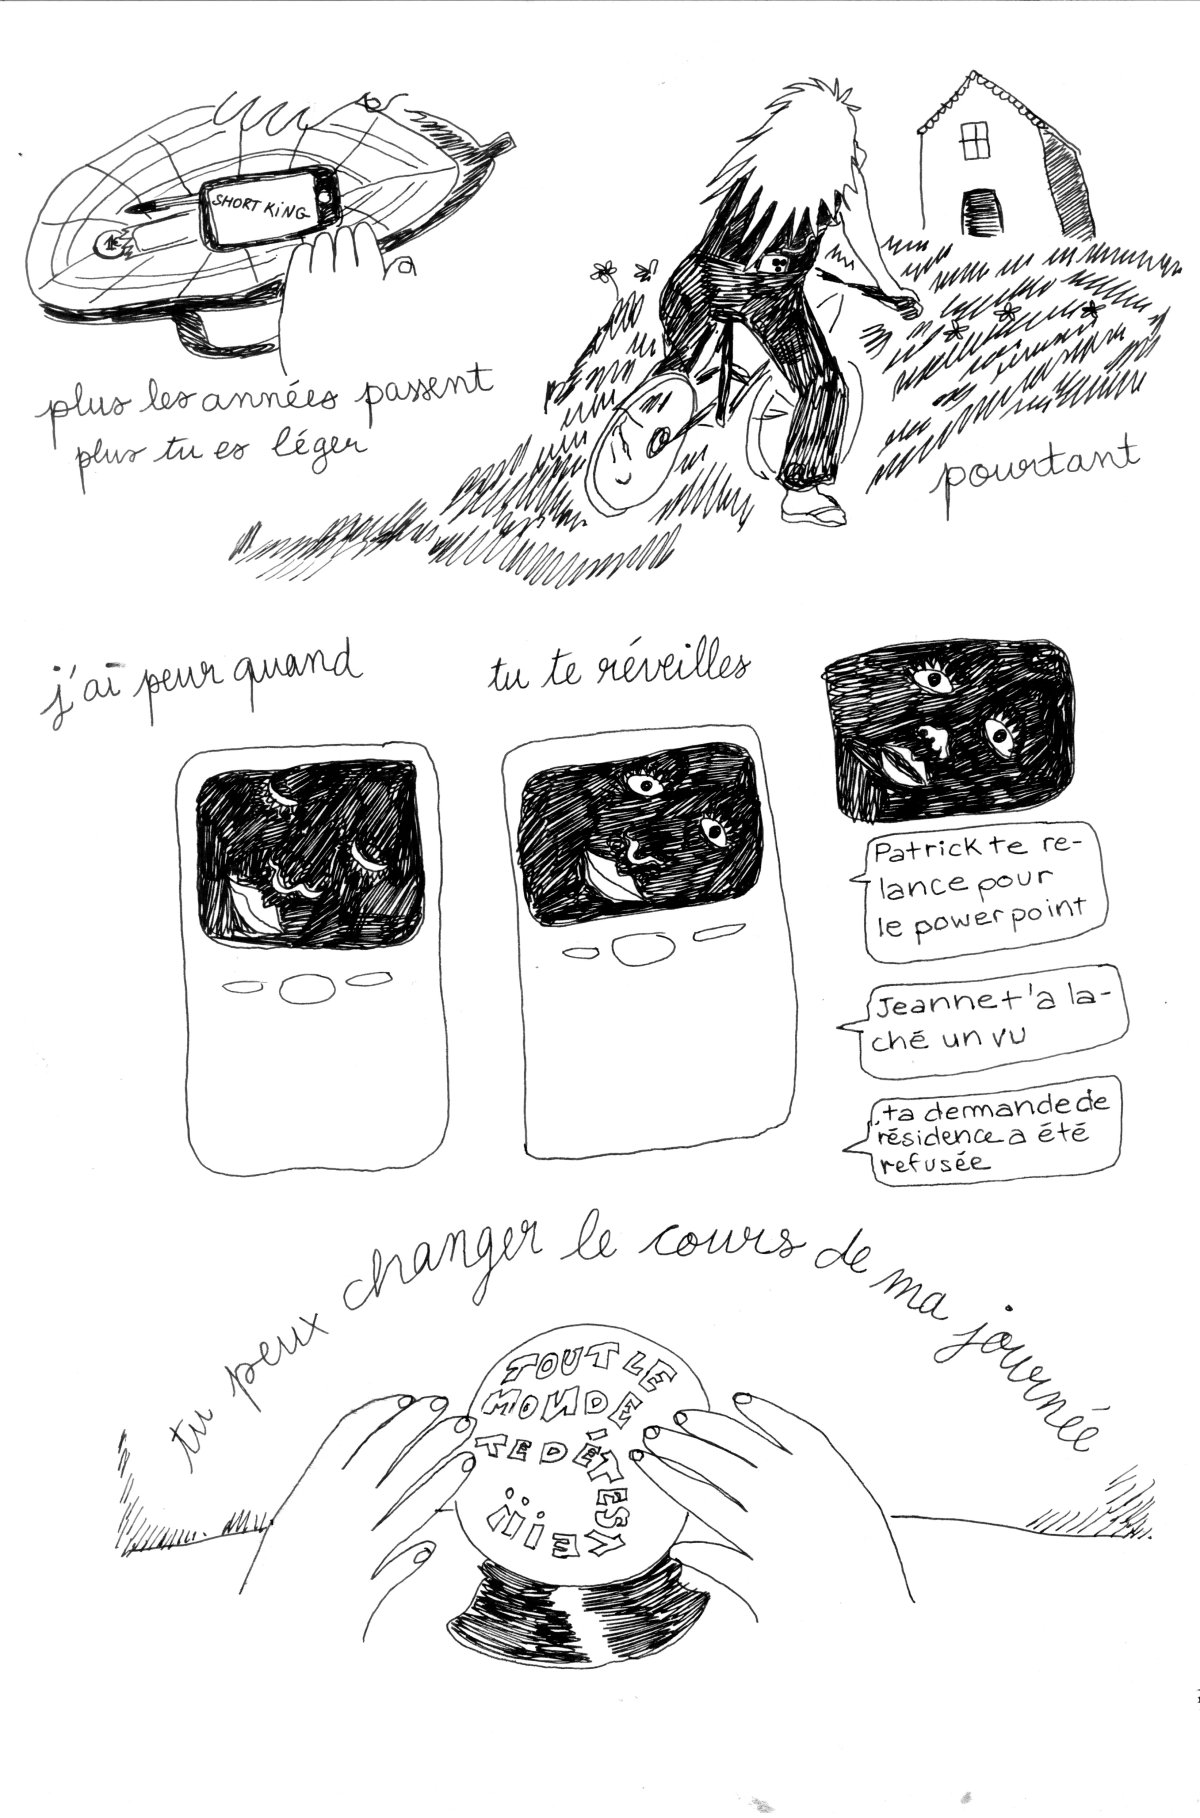 SHORT KING
1€
plus les années passent
plus tu es léger
pourtant
j'ai peur quand
tu te réveilles
Patrick te re-
lance pour
le powerpoint
Jeanne t'a la-
ché un vu
ta demande de
résidence a été
refusée
tu peux changer le cours de ma journée
TOUT LE
MONDE
TE DÉTESTE
!!!